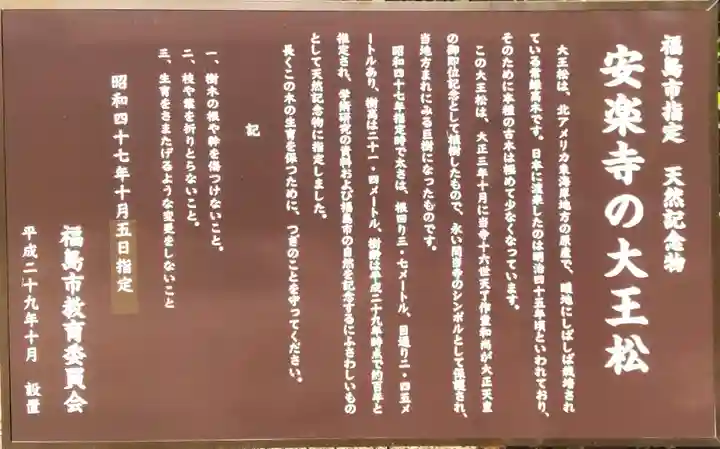 福島市指定　天然記念物
安楽寺の大王松
大王松は、北アメリカ東海岸地方の原産で、暖地にしばしば栽培され
ている常緑高木です。日本に渡来したのは明治四十五年頃といわれており、
そのために本種の古木は極めて少なくなっています。
この大王松は、大正三年十月に当寺十六世天了作童和尚が大正天皇
の御即位記念として植樹したもので、永い間当寺のシンボルとして保護され、
当地方まれにみる巨樹になったものです。
昭和四十七年指定時で太さは、根回り三・七メートル、目通り二・四五メ
ートルあり、樹高は二十一・四メートル、樹齢は平成二十九年時点で約百年と
推定され、学術研究の資料および福島市の自然を記念するにふさわしいもの
として天然記念物に指定しました。
長くこの木の生育を保つために、つぎのことを守ってください。
記
一、樹木の根や幹を傷つけないこと。
二、枝や葉を折りとらないこと。
三、生育をさまたげるような変更をしないこと
昭和四十七年十月五日指定
福島市教育委員会
平成二十九年十月　設置